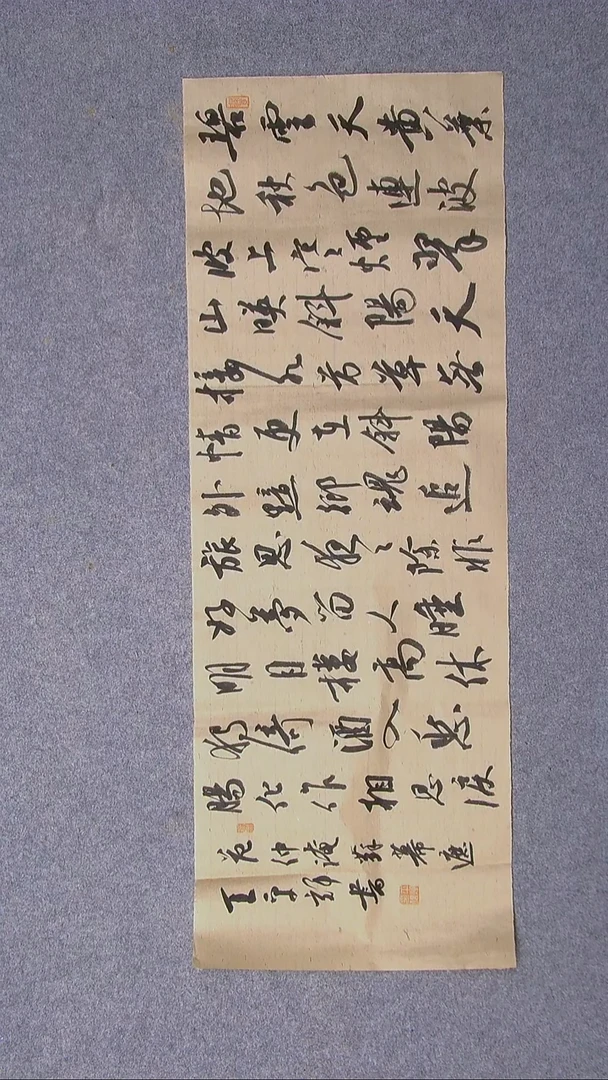 碧雲天黄葉
地秋色連波
波上寒煙翠
山映斜陽天
接水芳草無
情更在斜陽
外黯鄉魂追
旅思夜々除非
好夢留人睡
明月樓高休
獨倚酒入愁
腸化作相思淚
范仲淹蘇幕遮
王書